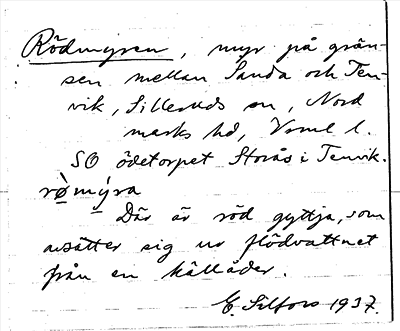 Rödmyren, myr på grän-
sen mellan Sanda och Ten-
vik, Silleruds sn, Nord
marks hd, Vrml l.
SO ödetorpet Storås i Tenvik.
rø̀mýra
Där är röd gyttja, som
avsätter sig ur flödvattnet
från en källåder.
E. Silfors 1937.